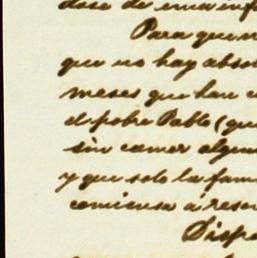 dose de una inf
Para que n
que no hay abso
meses que han
el pobre Pablo (que
sin comer algun
y que solo la fam
comiensa á reser
Dispe